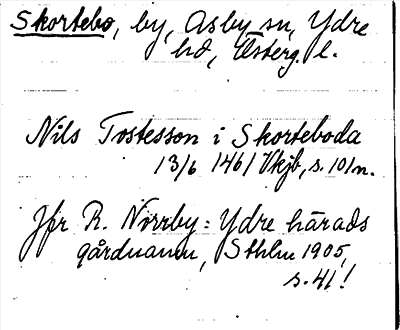 Skortebo, by, Asby sn, Ydre
hd, Österg. l.
Nils Tostesson i Skorteboda
13/6 1461 Vkjb, s. 101 n.
Jfr R. Norrby: Ydre härads
gårdnamn, Sthlm 1905,
s. 41!